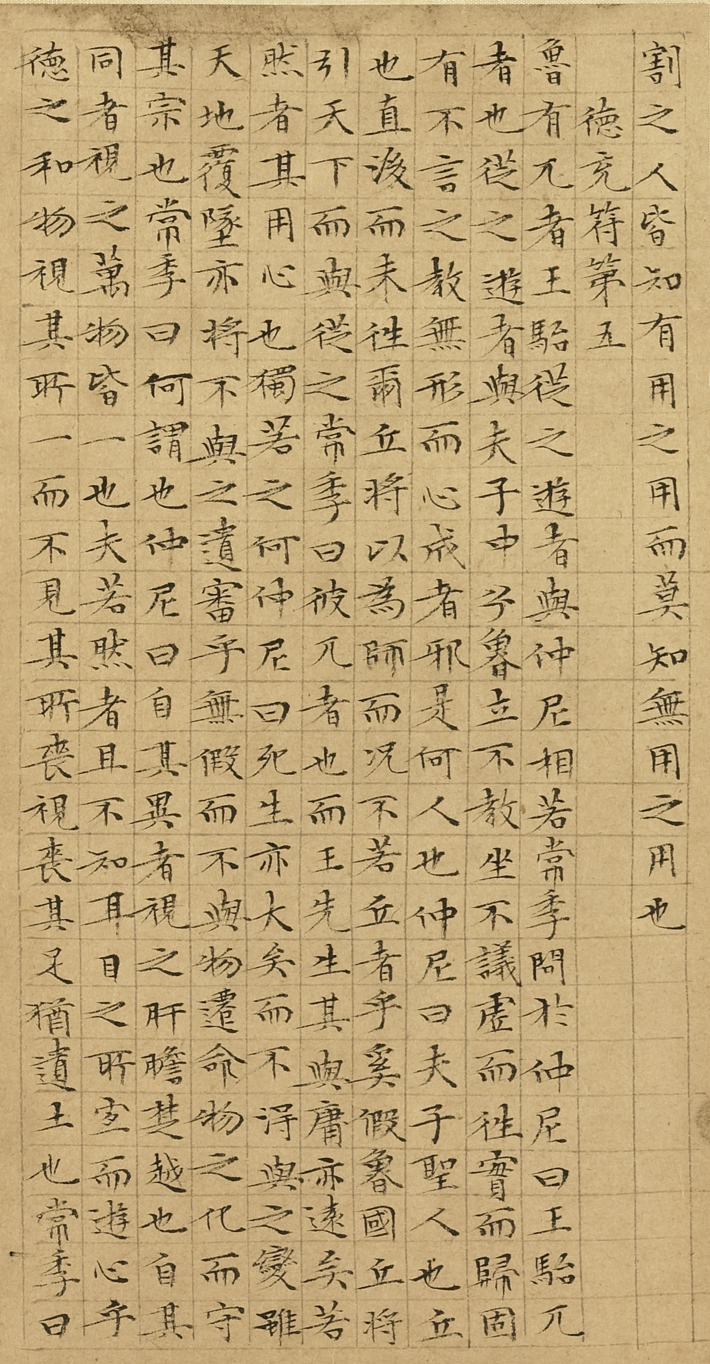 割之人皆知有用之用而莫知無用之用也
德充符第五
魯有兀者王駘從之遊者與仲尼相若常季問於仲尼曰王駘兀
者也從之遊者與夫子中分魯立不教坐不議虛而往實而歸固
有不言之教無形而心成者邪是何人也仲尼曰夫子聖人也丘
也直後而未往爾丘將以為師而況不若丘者乎奚假魯國丘將
引天下而與從之常季曰彼兀者也而王先生其與庸亦遠矣若
然者其用心也獨若之何仲尼曰死生亦大矣而不得與之變雖
天地覆墜亦將不與之遺審乎無假而不與物遷命物之化而守
其宗也常季曰何謂也仲尼曰自其異者視之肝膽楚越也自其
同者視之萬物皆一也夫若然者且不知耳目之所宜而遊心乎
德之和物視其所一而不見其所喪視喪其足猶遺土也常季曰